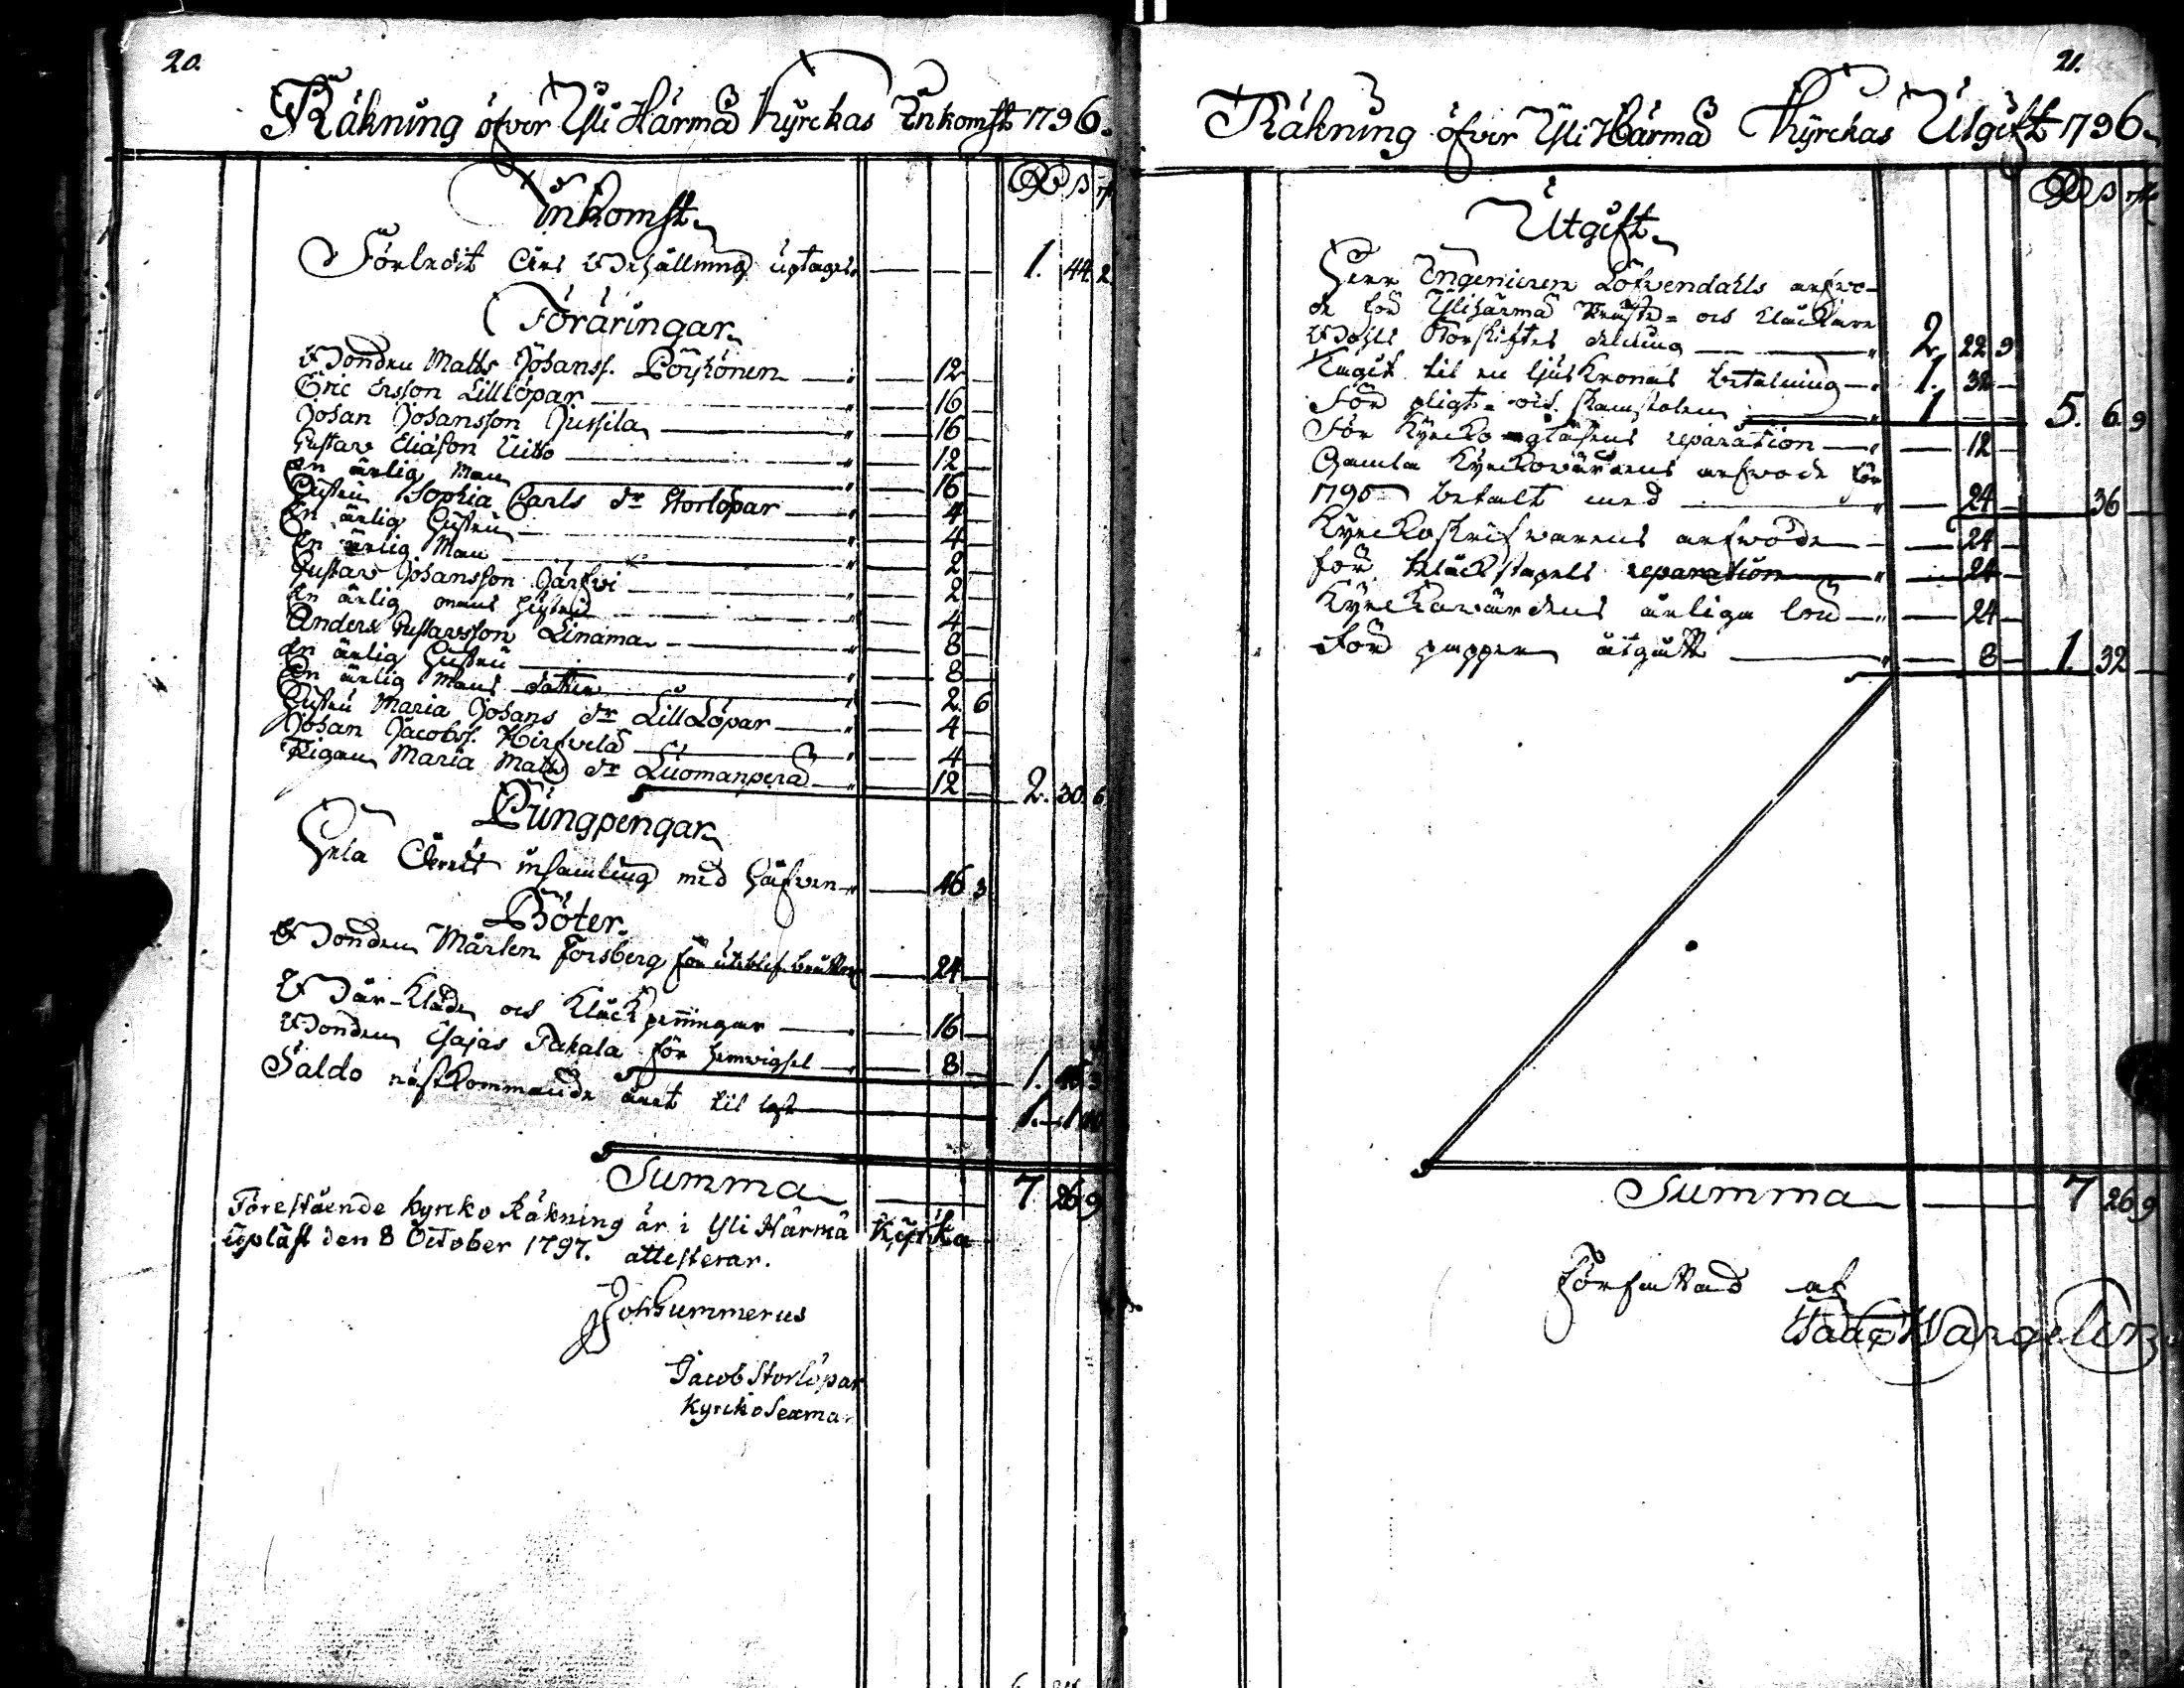 20.
Räkning öfver Yli Härmä Kyrckas Inkomst 1796.
Rd ß rst
Inkomst
Förledit Års Behållning uptages — — — 1. 44. 2.
Föräringar
Bonden Matts Johanss. Pöyhönen — 12 —
Eric Ersson Lilllöpar — 16 —
Johan Johansson Jussila — 16 —
Gustav Eliason Uitto — 12 —
En ärlig Man — 16 —
Hustru Sophia Carls dr Storlöpar — 4 —
En ärlig Hustru — 4 —
En ärlig Man — 2 —
Gustav Johansson Järfvi — 2 —
En ärlig mans hustru — 4 —
Anders Gustavsson Linama — 8 —
En ärlig Hustru — 8 —
En ärlig Mans dotter — 2. 6
Hustru Maria Johans dr Lill Löpar — 4 —
Johan Jacobss. Hirfvelä — 4 —
Pigan Maria Matts dr Luomanperä — 12 — 2. 30. 6
Pungpengar
Hela Årets insamling med Håfven — 46 3
Böter
Bonden Mårten Forsberg för uteblif. — 24 —
Bår-Kläde och Klåckpenningar — 16 —
Bonden Esajas Pakala för hemvigsel — 8 — 1. 46 3
Saldo nästkommande året til last — 1. — 1 10
Summa — 7 26 9
Förestående Kyrcko Räkning är i Yli Härmä Kyrka
Upläst den 8 October 1797. attesterar.
Joh Gummerus
Jacob Storlöpar
Kyrcko Sexma
21.
Räkning öfver Yli Härmä Kyrckas Utgift 1796
Rd ß rst
Utgift
Herr Ingenieuren Löfvendahls arfvo-
de för Yliharmä och Klåckare
Bohls Storskiftes delning — 2 22 9
Lagit til en ljus Kronas betalning — 1. 32 —
För pligt- och skamstolen — 1 — — 5. 6 9
För Kyrcko glasens reparation — 12 —
Gamla Kyrckowärdens arfwode för
1795 betalt med — 24 — 36 —
Kyrckoskrifvarens arfwode — 24 —
för Klåckstapels reparation — 24 —
Kyrckowärdens årliga lön — 24 —
För papper utgått — 8 — 1. 32 —
Summa — 7 26 9
Författad af
Wargelin